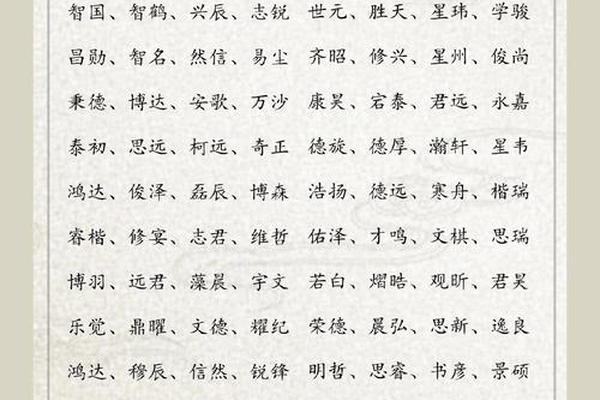 智国、智鹤、兴辰、志锐 世元、胜天、星玮、学骏
昌勋、智名、然信、易尘 齐昭、修兴、星州、俊尚
秉德、博达、安歌、万沙 康昊、宕泰、君远、永嘉
泰初、思远、柯远、奇正 德旋、德厚、瀚轩、星韦
鸿达、俊泽、磊辰、博森 浩扬、德远、寒舟、楷瑞
睿楷、修宴、志君、维哲 佑泽、才鸣、文棋、思瑞
博羽、远君、藻晨、宇文 若白、熠皓、观昕、君昊
乐觉、鼎曜、文德、耀纪 荣德、晨弘、思新、逸良
鸿达、穆辰、信然、锐锋 明哲、思睿、书彦、景硕